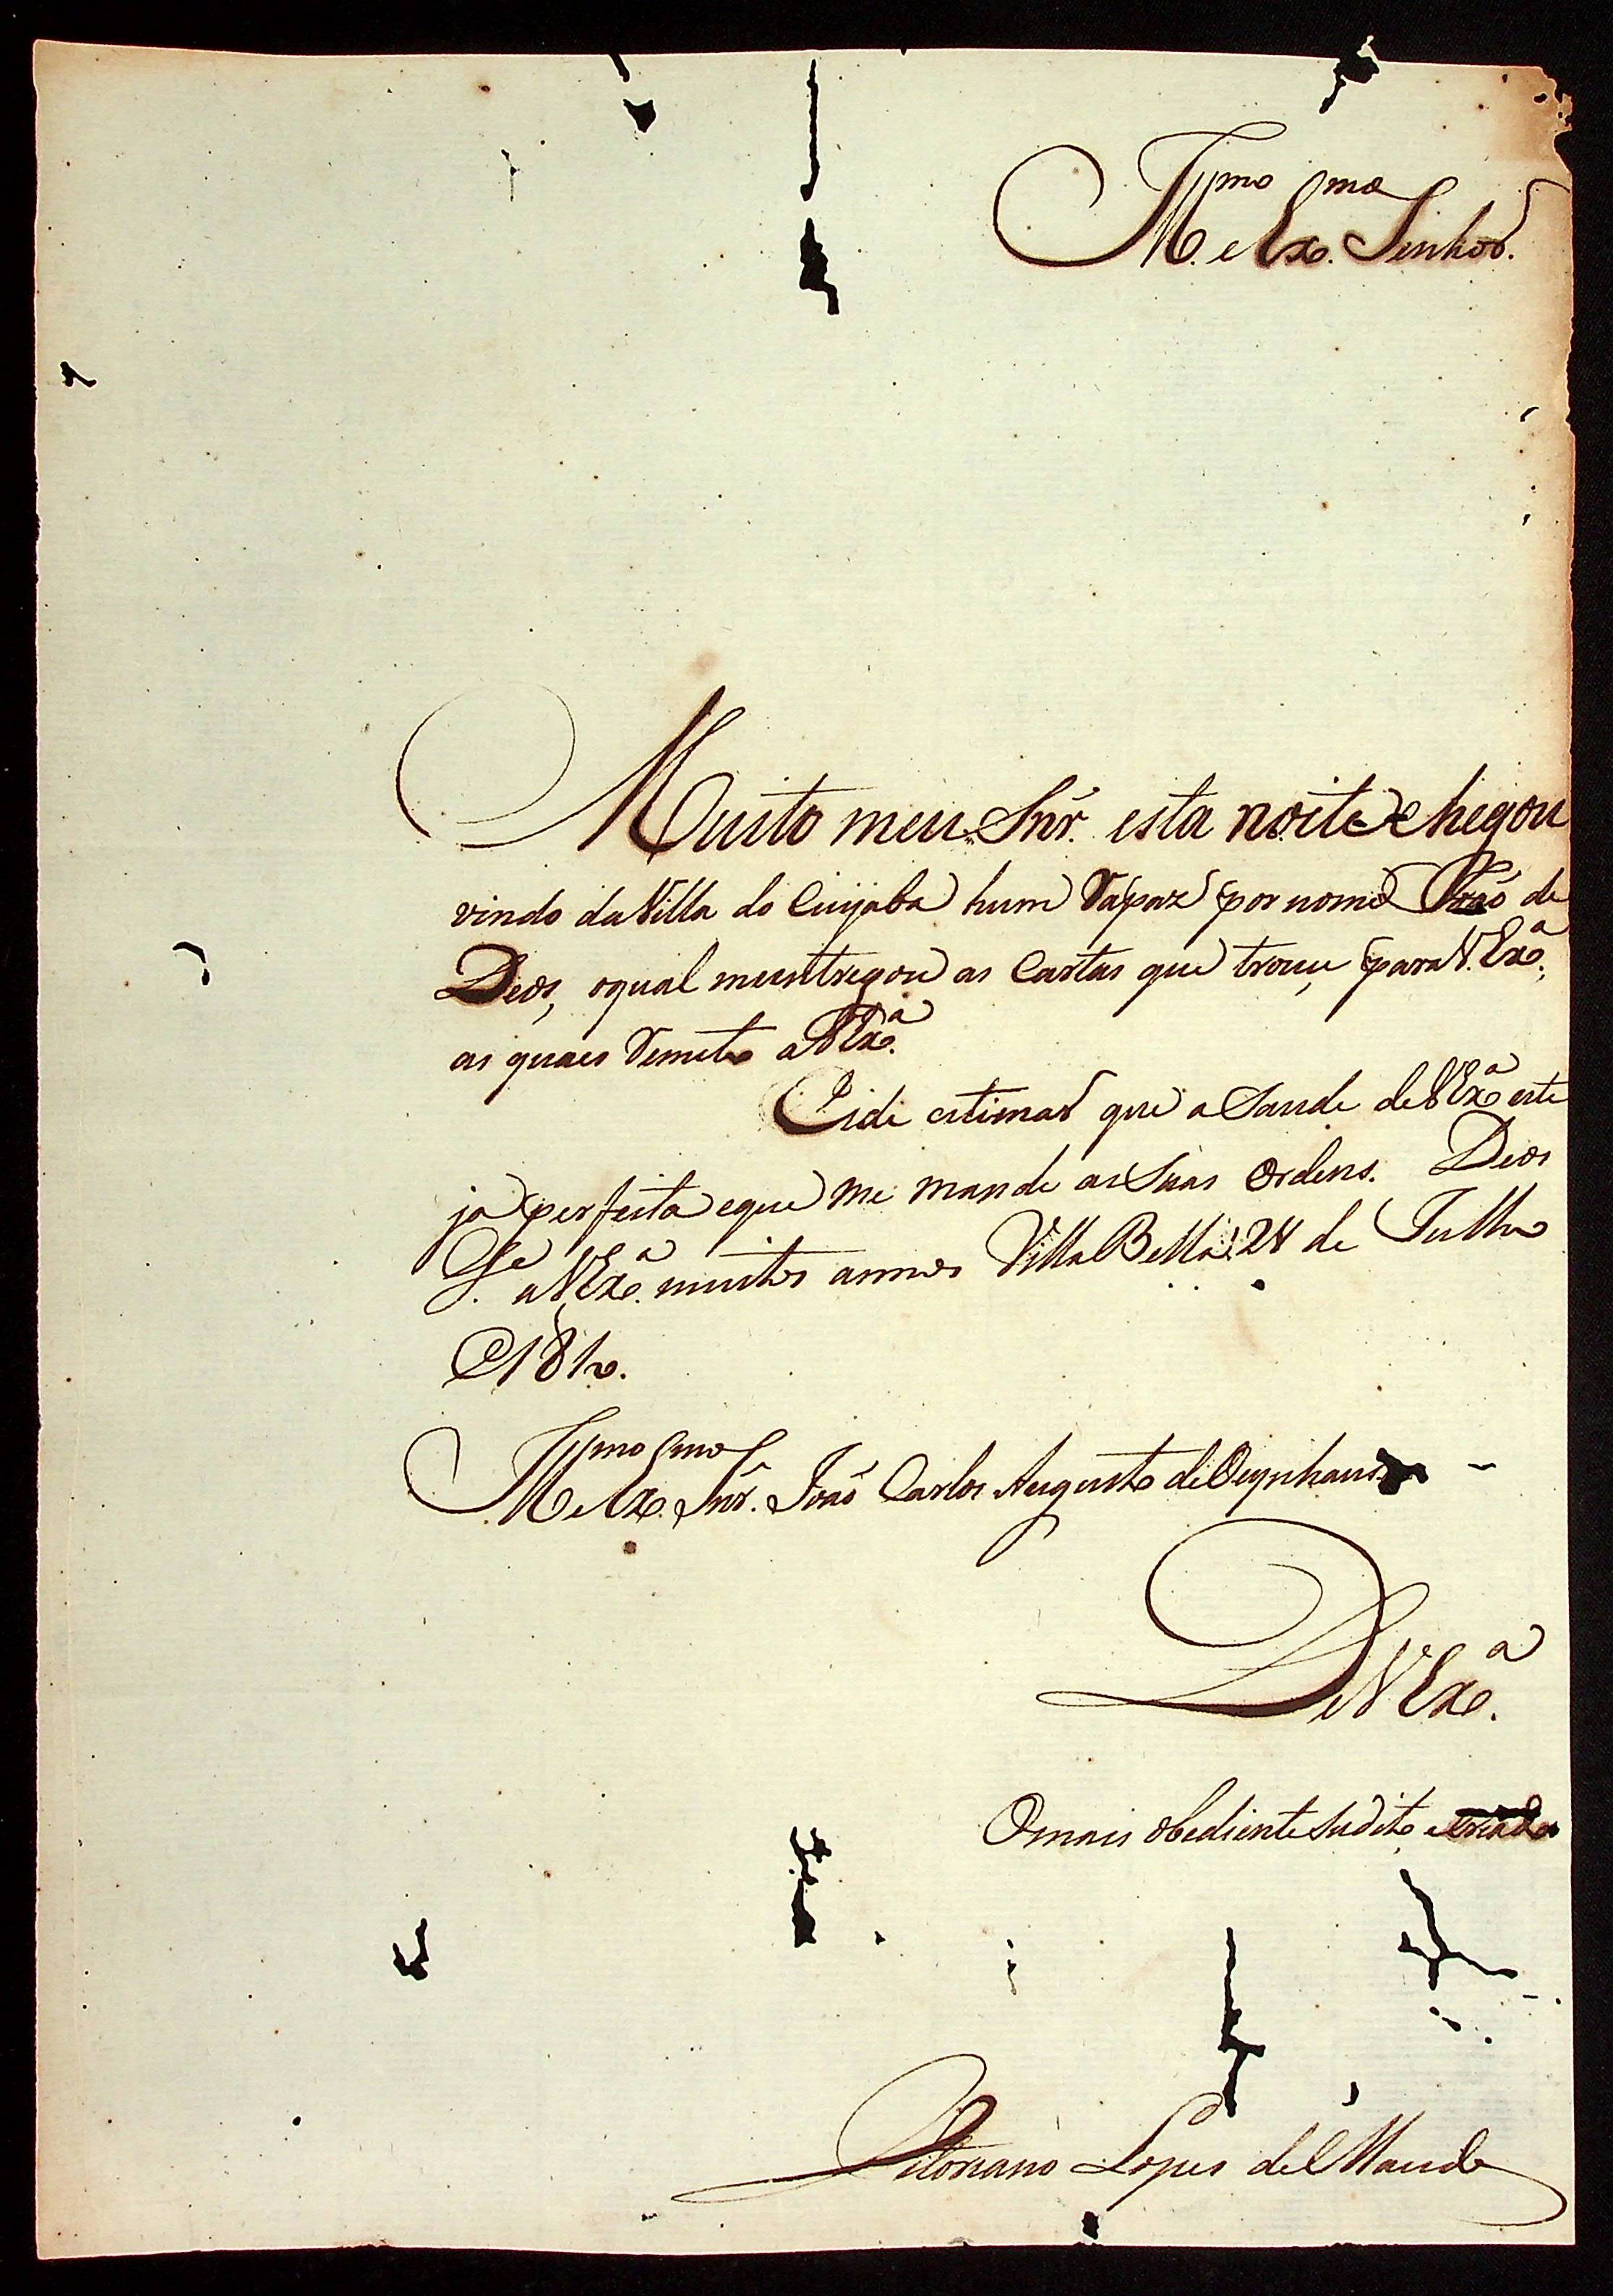 Illmo. e Exmo. Senhor.
Muito meu Snr. esta noite chegou
vindo da Villa do Cuyaba hum rapaz por nome João de
Deos, o qual me entregou as Cartas que trouce, para V. Exa.,
as quaes remeto a V Exa.
Eide estimar que a Saude de V Exa. este
ja perfeita e que me mande as Suas Ordens. Deos
Ge. a V Exa. muitos annos Villa Bella 24 de Julho
de 1812.
Illmo. e Exmo. Snr. João Carlos Augusto de Oeynhausen
De V Exa.
O mais obediente sudito e criado
Vitoriano Lopes de Macedo